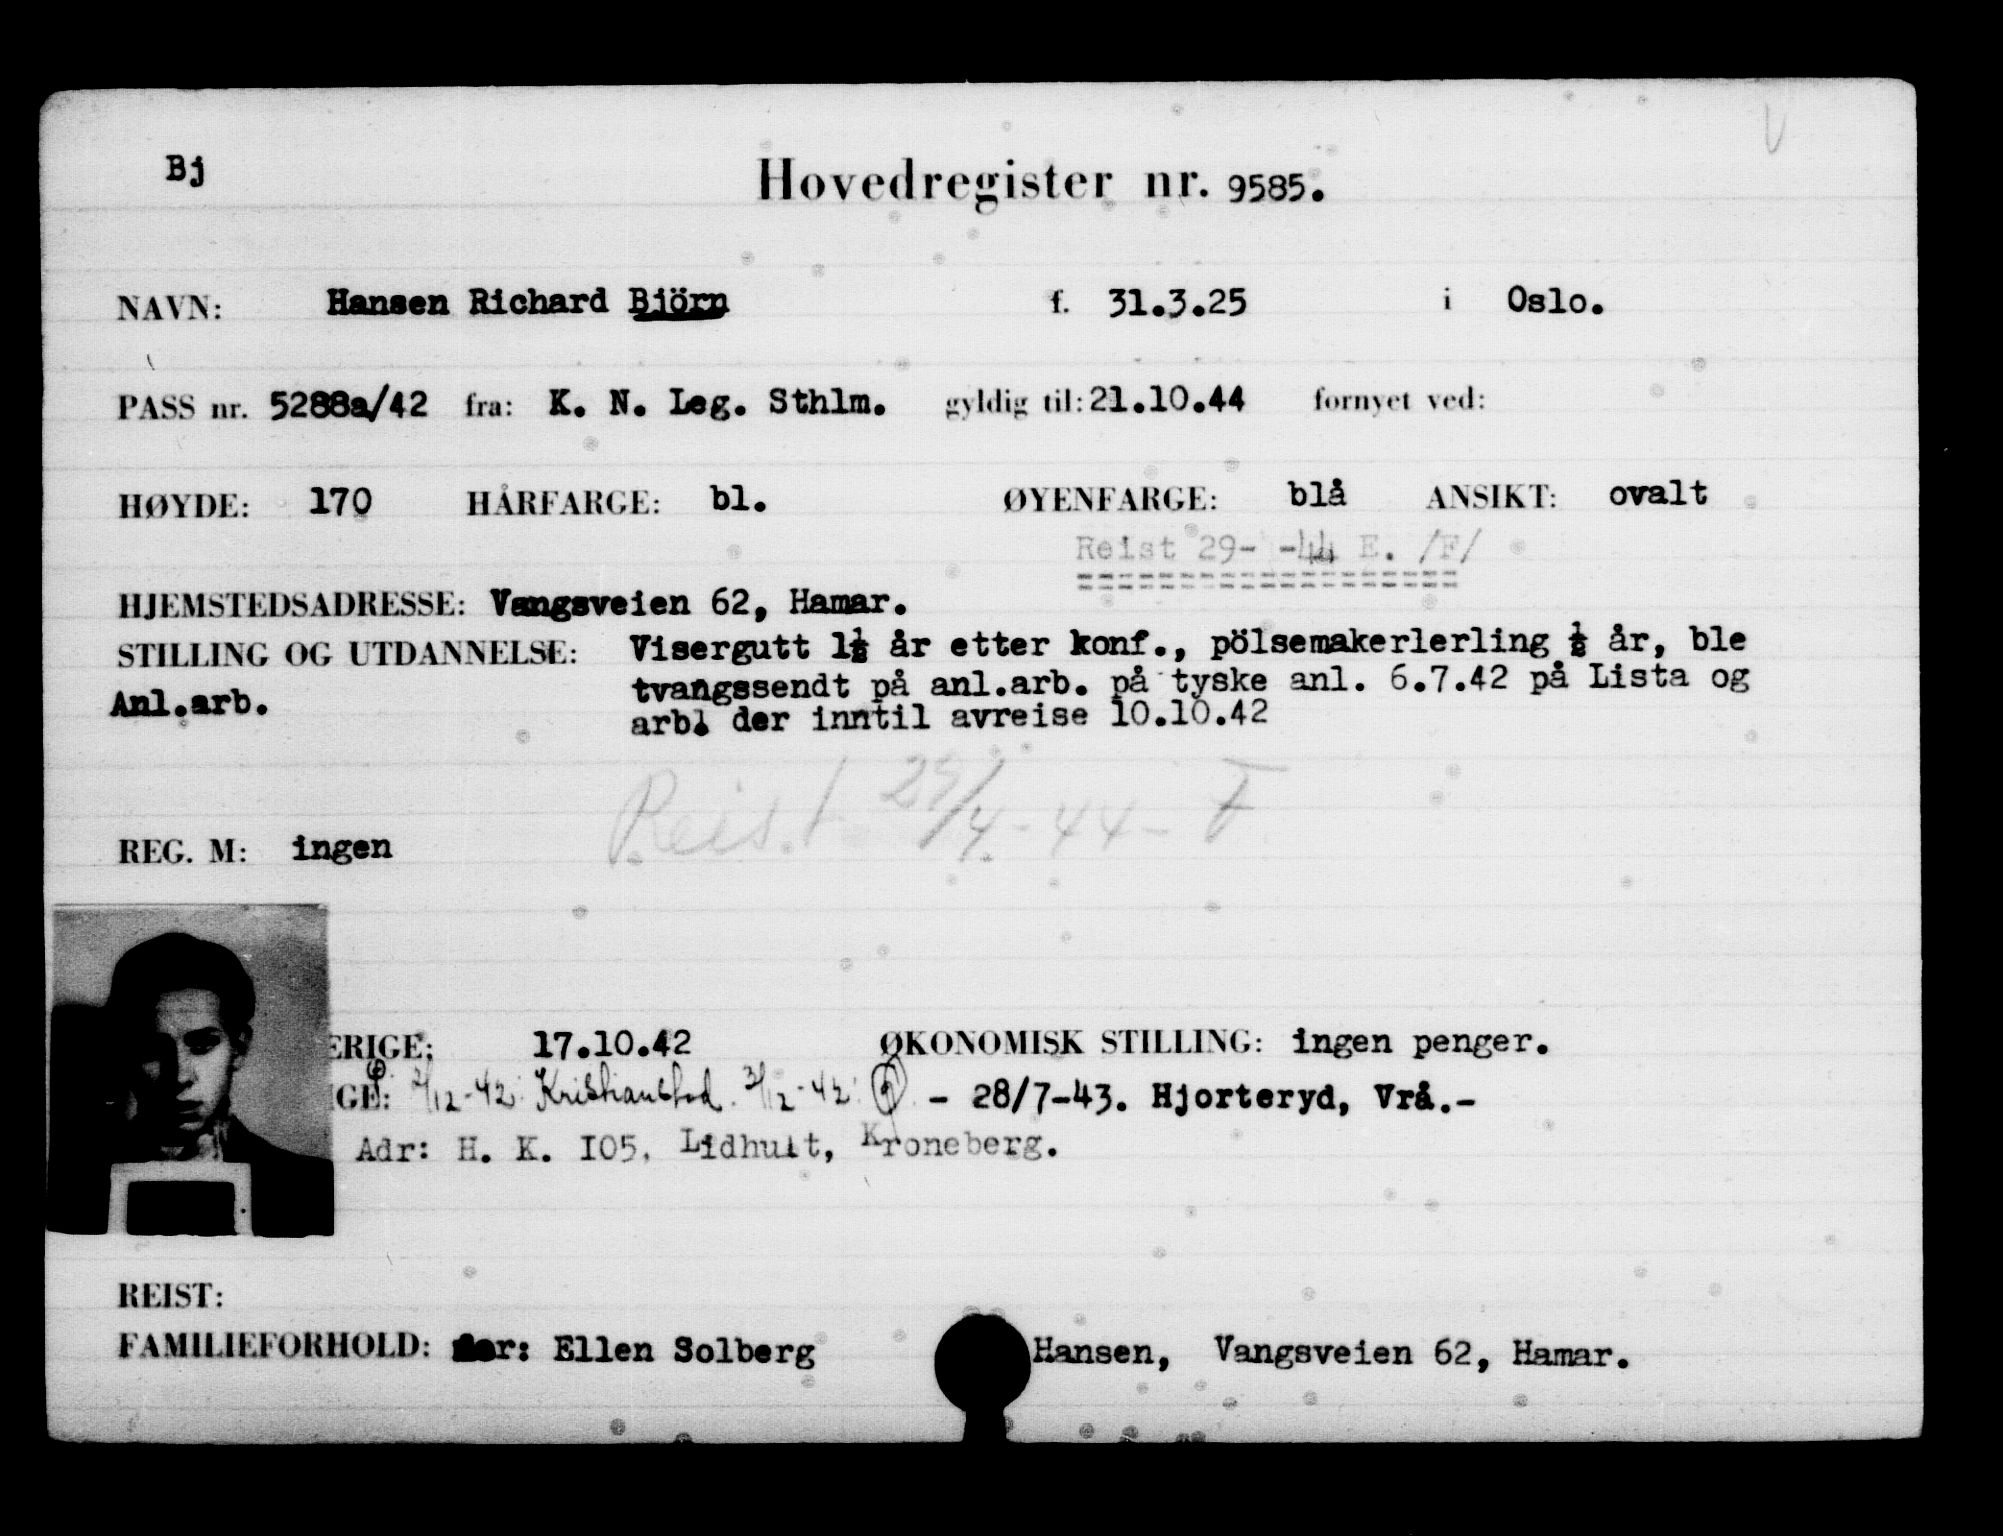 Bj
Hovedregister nr. 9585.
NAVN: Hansen Richard Björn f. 31.3.25 i Oslo.
PASS nr. 5288a/42 fra: K. N. Leg. Sthlm. gyldig til: 21.10.44 fornyet ved:
HØYDE: 170 HÅRFARGE: bl. ØYENFARGE: blå ANSIKT: ovalt
Reist 29- -44 E. /F/
HJEMSTEDSADRESSE: Vangsveien 62, Hamar.
STILLING OG UTDANNELSE: Visergutt 1½ år etter konf., pölsemakerlerling ½ år, ble
Anl.arb. tvangssendt på anl.arb. på tyske anl. 6.7.42 på Lista og
arb. der inntil avreise 10.10.42
Reist 29/4-44- F
REG. M: ingen
ERIGE: 17.10.42 ØKONOMISK STILLING: ingen penger.
IGE: 2/12-42: Kristianstad. 3/12-42: - 28/7-43. Hjorteryd, Vrå.-
Adr: H. K. I05, Lidhult, Kroneberg.
REIST:
FAMILIEFORHOLD: Mor: Ellen Solberg Hansen, Vangsveien 62, Hamar.